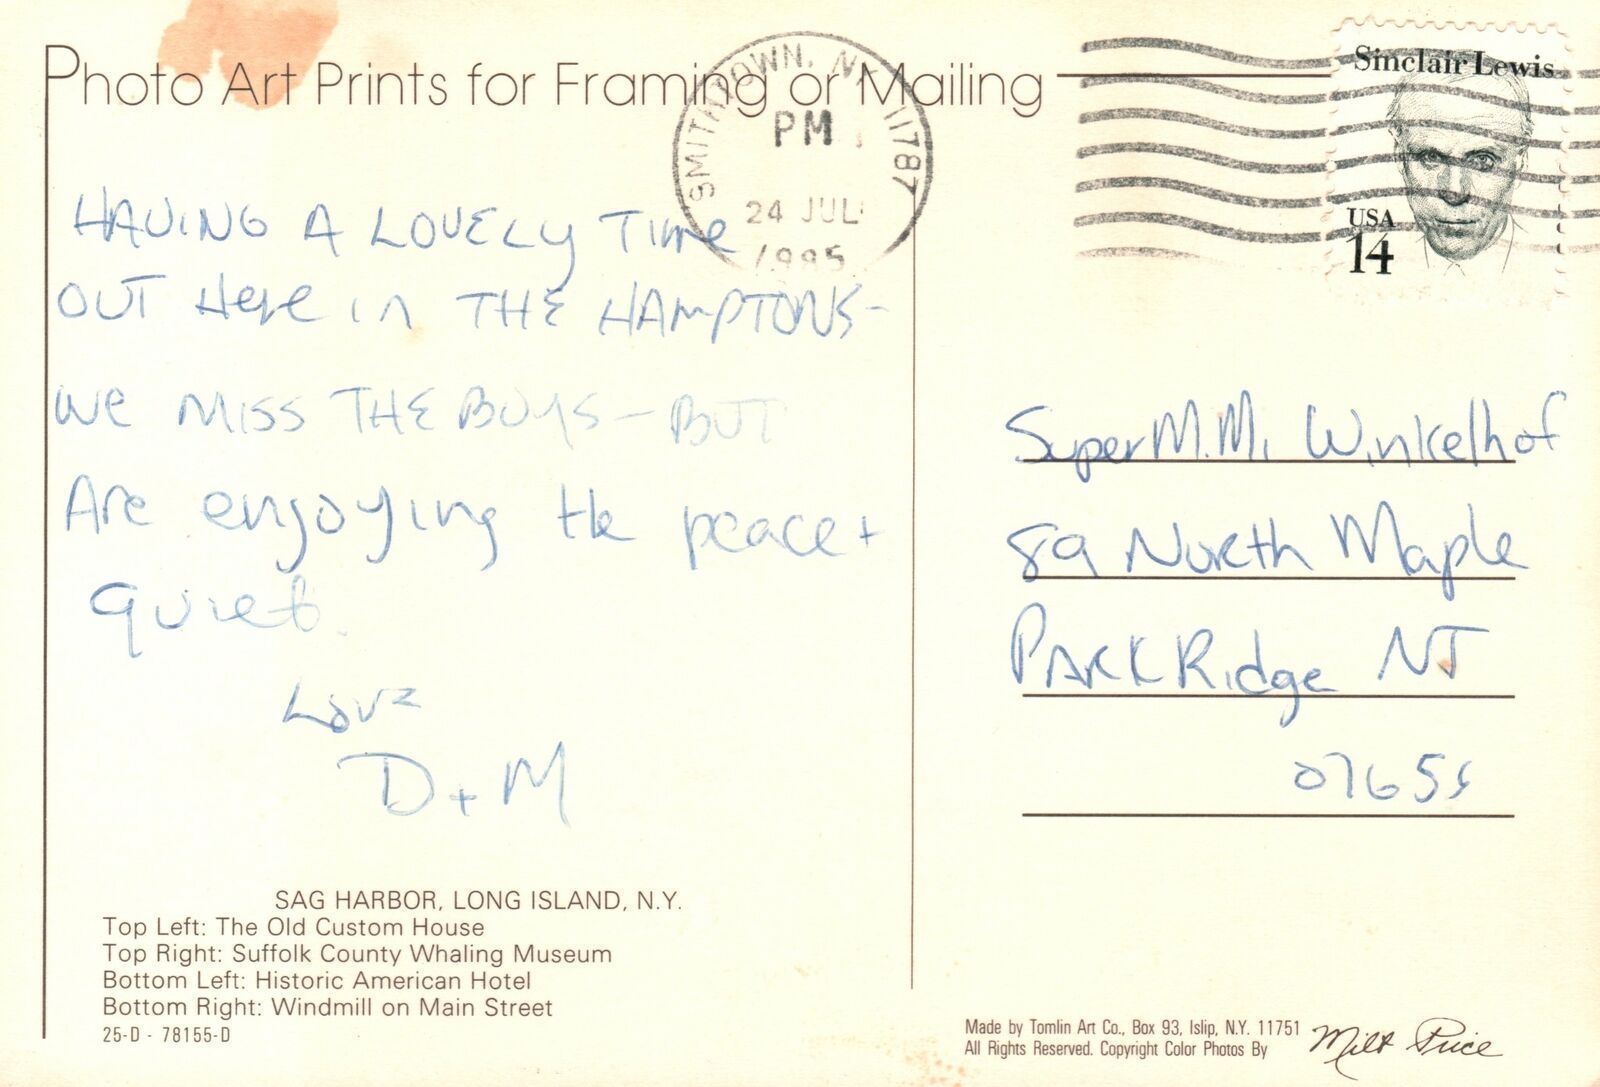 Photo Art Prints for Framing or Mailing
SMITHTOWN, NY 11787
PM
24 JUL
1995
Sinclair Lewis
USA
14
HAVING A LOVELY TIME
OUT HERE IN THE HAMPTONS-
WE MISS THE BOYS - BUT
Are enjoying the peace +
quiet.
Love
D + M
Super M.M. Winkelhof
89 North Maple
PARK Ridge NJ
07656
SAG HARBOR, LONG ISLAND, N.Y.
Top Left: The Old Custom House
Top Right: Suffolk County Whaling Museum
Bottom Left: Historic American Hotel
Bottom Right: Windmill on Main Street
25-D - 78155-D
Made by Tomlin Art Co., Box 93, Islip, N.Y. 11751
All Rights Reserved. Copyright Color Photos By Milt Price